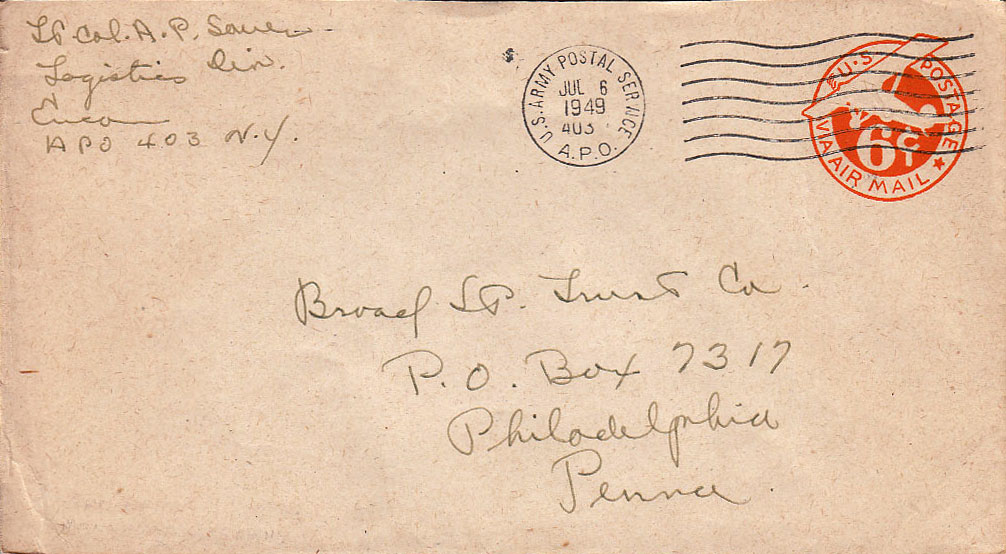 Lt Col. A. P. Sauer
Logistics Div.
Eucom
APO 403 N.Y.
U.S. ARMY POSTAL SERVICE
JUL 6
1949
403
A.P.O.
U.S. POSTAGE
6¢
VIA AIR MAIL
Broad St. Trust Co.
P.O. Box 7317
Philadelphia
Penna.